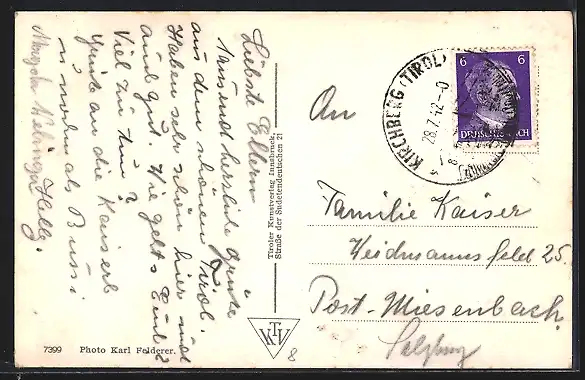 Liebste Eltern
Tausend herzliche Grüsse
aus dem schönen Tirol.
Haben sehr schön hier und
auch gut. Wie geht's Euch?
Viel zu tun?
an die
nochmals Bussi
Helly.
Tiroler Kunstverlag Innsbruck,
Straße der Sudetendeutschen 21
7399 Photo Karl Felderer.
TKV
8
KIRCHBERG (TIROL)
28.7.42-0
6 6
DEUTSCHES REICH
An
Familie Kaiser
Weidmannsfeld 25.
Post-Miesenbach
Salzburg